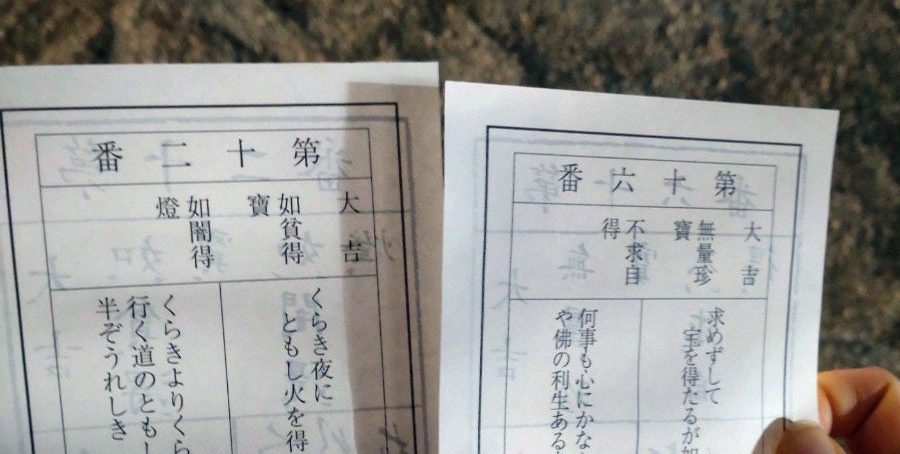 第十二番
大吉
如貧得
寶
如闇得
燈
くらき夜に
ともし火を得
くらきよりくら
行く道のともし
半ぞうれしき
第十六番
大吉
無量珍
寶
不求自
得
求めずして
宝を得たるが如
何事も心にかな
や佛の利生ある